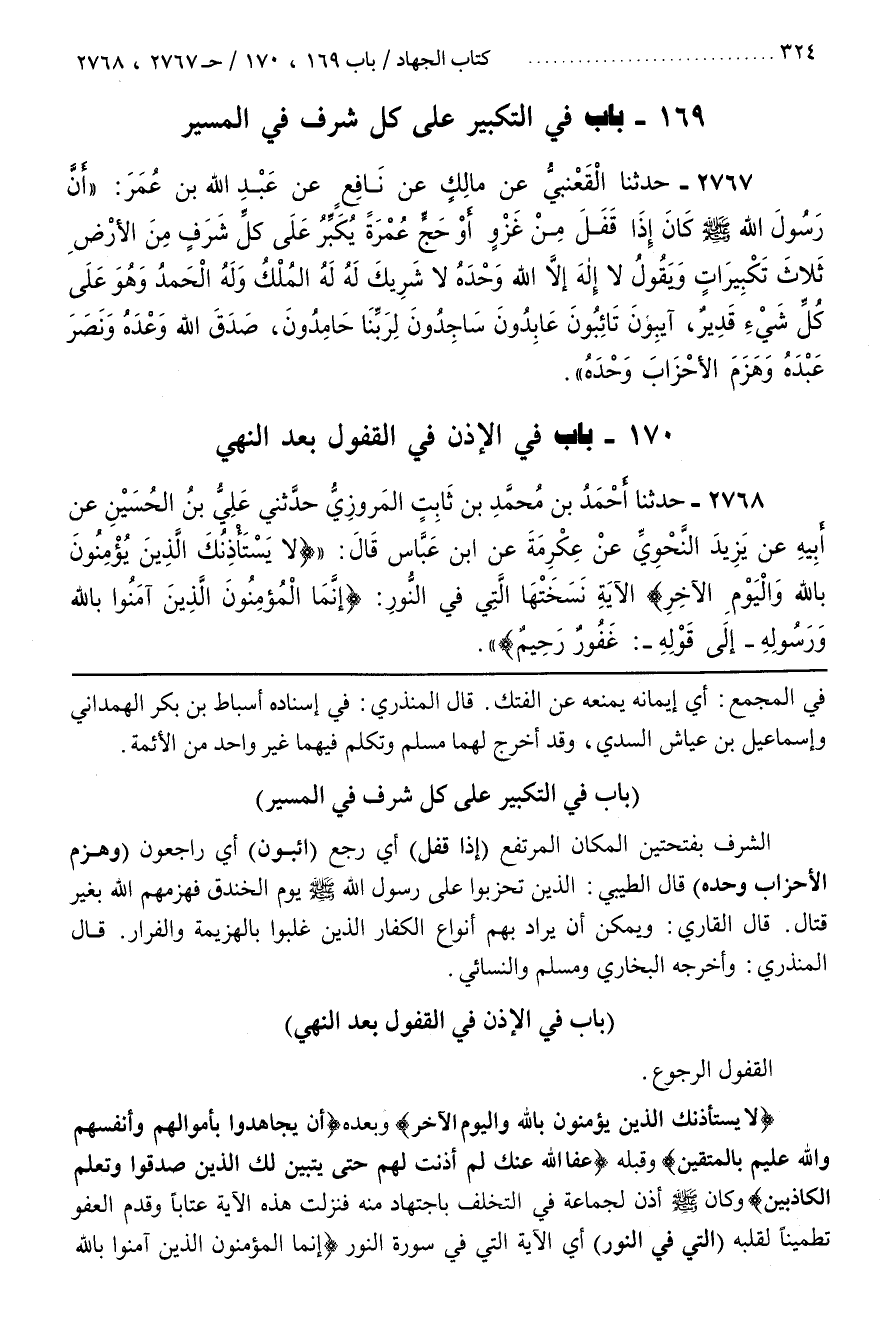 ٣٢٤ .............................. كتاب الجهاد / باب ١٦٩ ، ١٧٠ / حـ ٢٧٦٧ ، ٢٧٦٨
١٦٩ ـ باب في التكبير على كل شرف في المسير
٢٧٦٧ ـ حدثنا الْقَعْنبيُّ عن مالِكٍ عن نَـافِعٍ عن عَبْـدِ الله بن عُمَرَ: «أَنَّ
رَسُولَ الله ﷺ كَانَ إِذَا قَفَـلَ مِـنْ غَزْوٍ أَوْ حَجٍّ عُمْرَةً يُكَبِّرُ عَلَى كلِّ شَرَفٍ مِنَ الأرْضِ
ثَلاثَ تَكْبِيرَاتٍ وَيَقُولُ لا إِلٰهَ إلَّا الله وَحْدَهُ لا شَرِيكَ لَهُ لَهُ المُلْكُ وَلَهُ الْحَمدُ وَهُوَ عَلَى
كُلِّ شَيْءٍ قَدِيرٌ، آيِبُونَ تَائِبُونَ عَابِدُونَ سَاجِدُونَ لِرَبِّنَا حَامِدُونَ، صَدَقَ الله وَعْدَهُ وَنَصَرَ
عَبْدَهُ وَهَزَمَ الأحْزَابَ وَحْدَهُ».
١٧٠ ـ باب في الإذن في القفول بعد النهي
٢٧٦٨ ـ حدثنا أَحْمَدُ بن مُحمَّدِ بن ثَابِتٍ المَروزِيُّ حدَّثني عَلِيُّ بنُ الحُسَيْنِ عن
أَبِيهِ عن يَزِيدَ النَّحْوِيِّ عنْ عِكْرِمَةَ عن ابن عَبَّاس قَالَ: «﴿لا يَسْتَأْذِنُكَ الَّذِينَ يُؤْمِنُونَ
بالله وَالْيَوْمِ الآخِرِ﴾ الآيَةِ نَسَخَتْهَا الَّتِي في النُّورِ: ﴿إِنَّمَا الْمُؤْمِنُونَ الَّذِينَ آمَنُوا بالله
وَرَسُولِهِ ـ إلَى قَوْلِهِ ـ: غَفُورٌ رَحِيمٌ﴾».
في المجمع: أي إيمانه يمنعه عن الفتك. قال المنذري: في إسناده أسباط بن بكر الهمداني
وإسماعيل بن عياش السدي، وقد أخرج لهما مسلم وتكلم فيهما غير واحد من الأئمة.
(باب في التكبير على كل شرف في المسير)
الشرف بفتحتين المكان المرتفع (إذا قفل) أي رجع (ائبـون) أي راجعون (وهـزم
الأحزاب وحده) قال الطيبي: الذين تحزبوا على رسول الله ﷺ يوم الخندق فهزمهم الله بغير
قتال. قال القاري: ويمكن أن يراد بهم أنواع الكفار الذين غلبوا بالهزيمة والفرار. قـال
المنذري: وأخرجه البخاري ومسلم والنسائي.
(باب في الإذن في القفول بعد النهي)
القفول الرجوع.
﴿لا يستأذنك الذين يؤمنون بالله واليوم الآخر﴾ وبعده ﴿أن يجاهدوا بأموالهم وأنفسهم
والله عليم بالمتقين﴾ وقبله ﴿عفا الله عنك لم أذنت لهم حتى يتبين لك الذين صدقوا وتعلم
الكاذبين﴾ وكان ﷺ أذن لجماعة في التخلف باجتهاد منه فنزلت هذه الآية عتاباً وقدم العفو
تطميناً لقلبه (التي في النور) أي الآية التي في سورة النور ﴿إنما المؤمنون الذين آمنوا بالله